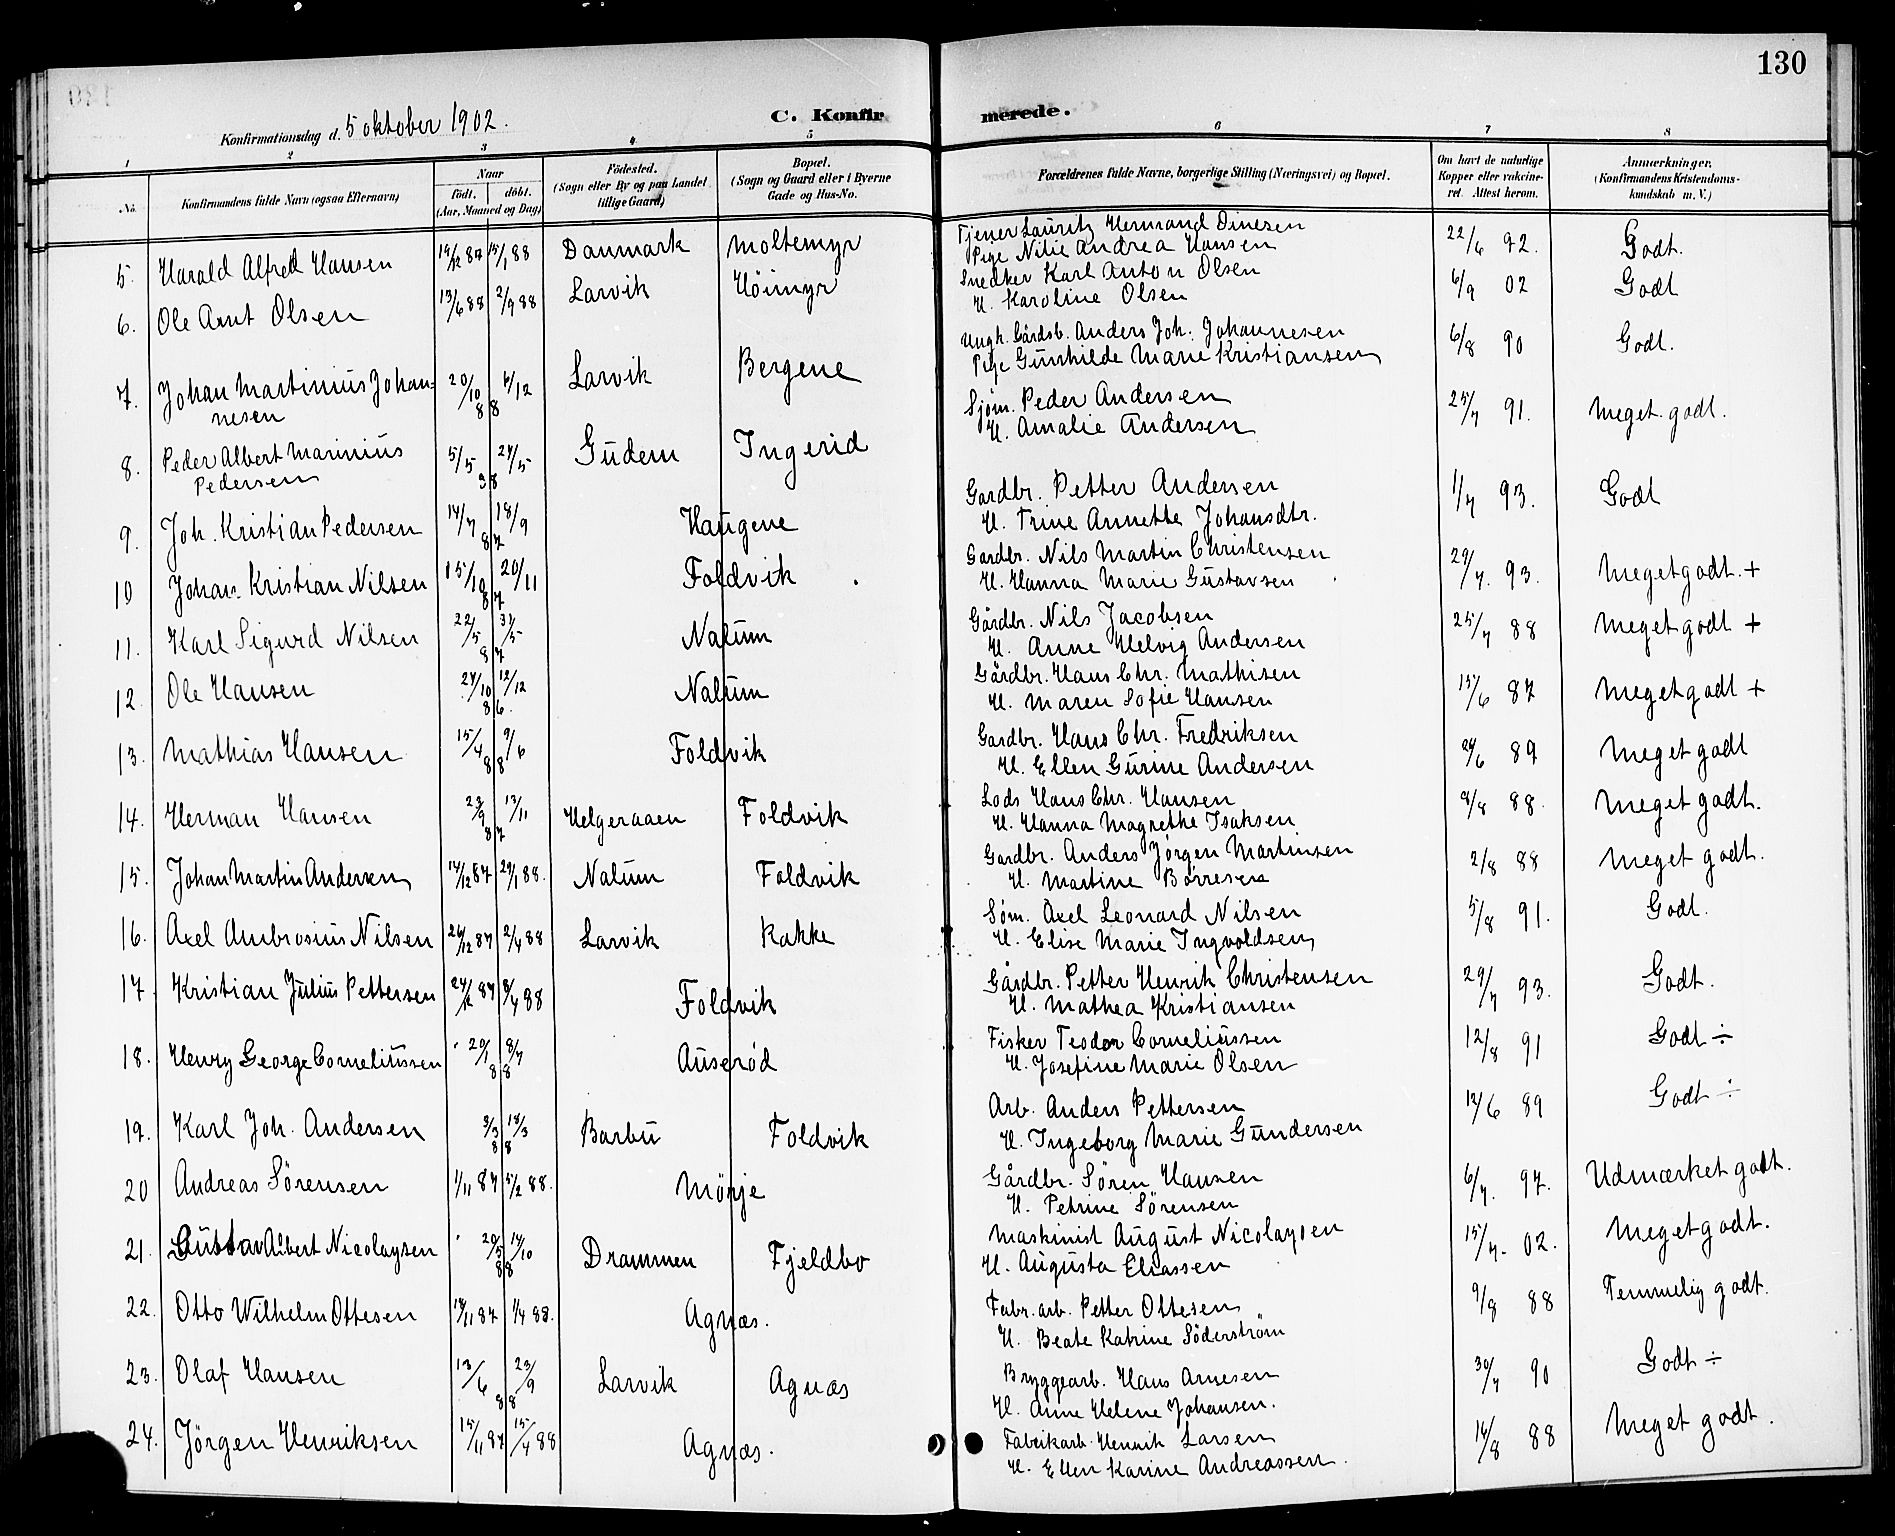 130
Konfirmationsdag d. 5 oktober 1902.
C. Konfirmerede.
1 2 3 4 5 6 7 8
No. Konfirmandens fulde Navn (ogsaa Efternavn) Naar födt. döbt. (Aar, Maaned og Dag) Födested. (Sogn eller By og paa Landet tillige Gaard) Bopæl. (Sogn og Gaard eller i Byerne Gade og Hus-No. Forældrenes fulde Navne, borgerlige Stilling (Næringsvei) og Bopæl. Om havt de naturlige Kopper eller vakcineret. Attest herom. Anmærkninger. (Konfirmandens Kristendomskundskab m. V.)
5. Harald Alfred Hansen 14/12 87 15/1 88 Danmark Moltemyr Tjener Lauritz Hermand Dinesen 22/6 92. Godt.
Pige Nilie Andrea Hansen
6. Ole Arnt Olsen 13/6 88 2/9 88 Larvik Höimyr Snedker Karl Anton Olsen 6/9 02 Godt
H. Karoline Olsen
7. Johan Martinius Johan- 20/10 6/12 88 Larvik Bergene Ungk. Gårdsb. Anders Joh. Johannesen 6/8 90 Godt.
nesen Pige Gunhilde Marie Kristiansen
8. Peder Albert Marinius 5/5 27/5 38 Gudem Ingerid Sjöm. Peder Andersen 25/7 91. Meget godt.
Pedersen H. Amalie Andersen
9. Joh. Kristian Pedersen 14/7 18/9 87 Haugene Gardbr. Petter Andersen 1/7 93. Godt
H. Trine Annette Johansdtr.
10 Johan Kristian Nilsen 15/10 20/11 87 Foldvik Gardbr. Nils Martin Christensen 29/7. 93. Meget godt. +
H. Hanna Marie Gustavsen
11. Karl Sigurd Nilsen 22/5 31/5 87 Nalum Gårdbr. Nils Jacobsen 25/7 88 Meget godt +
H. Anne Helvig Andersen
12. Ole Hansen 24/10 12/12 86. Nalum Gårdbr. Hans Chr. Mathisen 15/6 87 Meget godt +
H. Maren Sofie Hansen
13. Mathias Hansen 15/4 9/6 88 Foldvik Gardbr. Hans Chr. Fredriksen 24/6 89 Meget godt
H. Ellen Gurine Andersen
14. Herman Hansen 23/9 13/11 87 Helgeraaen Foldvik Lods Hans Chr. Hansen 9/8 88. Meget godt.
H. Hanna Magrethe Isaksen
15. Johan Martin Andersen 14/12 87 29/1 88. Nalum Foldvik Gardbr. Anders Jørgen Martinsen 2/8 88 Meget godt.
H. Martine Børresen
16. Axel Ambrosius Nilsen 26/12 87 2/4 88 Larvik Kakke Søm. Axel Leonard Nilsen 5/8 91. Godt.
H. Elise Marie Ingvoldsen
17. Kristian Julius Pettersen 24/12 87 8/4 88 Foldvik Gårdbr. Petter Henrik Christensen 29/7 93. Godt.
H. Mathea Kristiansen
18. Henry George Corneliussen 20/1 8/7 88 Auserød Fisker Teodor Corneliussen 12/8 91 Godt ÷
H. Josefine Marie Olsen
19. Karl Joh. Andersen 3/3 18/3 88 Barbu Foldvik Arb. Anders Pettersen 12/6 89 Godt ÷
H. Ingeborg Marie Gundersen
20 Andreas Sörensen 1/11 87 5/2 88. Mörje Gårdbr. Sören Hansen 6/7. 97. Udmærket godt.
H. Petrine Sörensen
21. Gustav Albert Nicolaysen 20/5 14/10 88 Drammen Fjeldbo Maskinist August Nicolaysen 15/7. 02. Meget godt.
H. Augusta Eliassen
22. Otto Wilhelm Ottesen 14/11 87 1/4 88. Agnæs. Fabr. arb. Petter Ottesen 9/8 88 Temmelig godt.
H. Beate Katrine Söderström
23. Olaf Hansen 13/6 23/9 88 Larvik Agnæs Bryggearb. Hans Arnesen 30/7 90 Godt ÷
H. Anne Helene Johansen.
24. Jörgen Henriksen 15/11 87 15/4 88 Agnæs. Fabrikarb. Henrik Larsen 14/8 88 Meget godt.
H. Ellen Karine Andreassen.